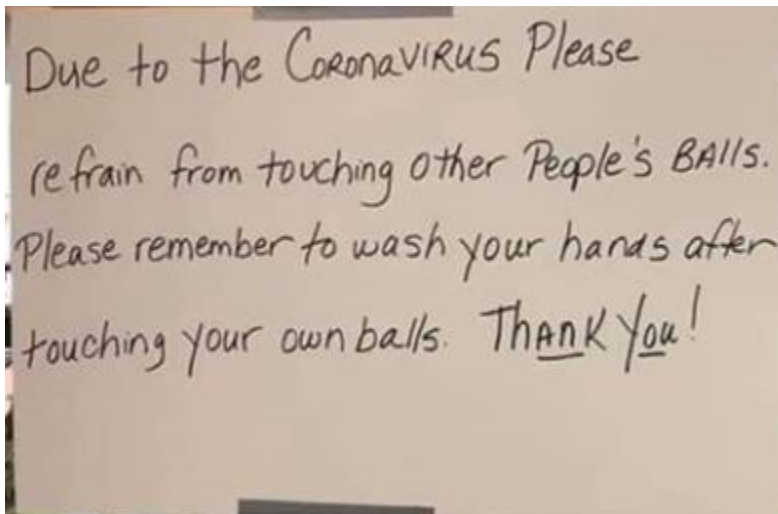 Due to the CORONAVIRUS Please
refrain from touching other People's BAlls.
Please remember to wash your hands after
touching your own balls. ThANK You!